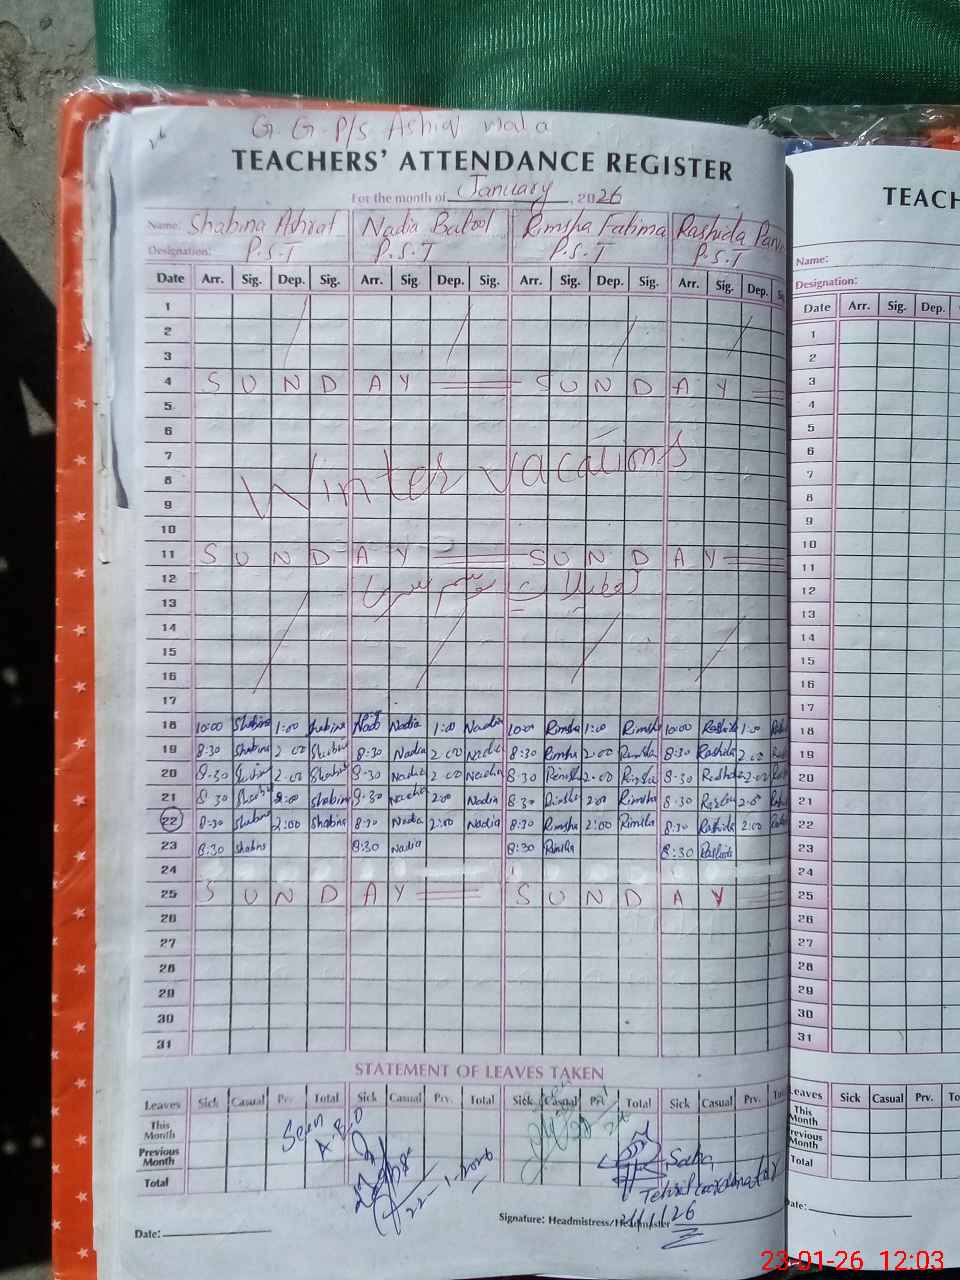 G. G. P/S Ashiq wala
TEACHERS' ATTENDANCE REGISTER
For the month of January, 2026
Name: Shabina Ashraf Nadia Batool Rimsha Fatima Rashida Parv
Designation: P.S.T P.S.T P.S.T P.S.T
Date Arr. Sig. Dep. Sig. Arr. Sig. Dep. Sig. Arr. Sig. Dep. Sig. Arr. Sig. Dep.
1
2
3
4 S U N D A Y S U N D A Y
5
6
7
8 Winter vacations
9
10
11 S U N D A Y S U N D A Y
12 تعطیلات موسم سرما
13
14
15
16
17
18 10:00 Shabina 1:00 Shabina Nadia 1:00 Nadia 10:00 Rimsha 1:00 Rimsha 10:00 Rashida 1:00
19 8:30 Shabina 2:00 Shabina 8:30 Nadia 2:00 Nadia 8:30 Rimsha 2:00 Rimsha 8:30 Rashida 2:00
20 8:30 2:00 Shabina 8:30 Nadia 2:00 Nadia 8:30 Rimsha 2:00 Rimsha 8:30 Rashida 2:00
21 8:30 Shabina 2:00 Shabina 8:30 Nadia 2:00 Nadia 8:30 Rimsha 2:00 Rimsha 8:30 Rashida 2:00
22 8:30 Shabana 2:00 Shabina 8:30 Nadia 2:00 Nadia 8:30 Rimsha 2:00 Rimsha 8:30 Rashida 2:00
23 8:30 Shabna 8:30 Nadia 8:30 Rimsha 8:30 Rashida
24
25 S U N D A Y S U N D A Y
26
27
28
29
30
31
STATEMENT OF LEAVES TAKEN
Leaves Sick Casual Prv. Total Sick Casual Prv. Total Sick Casual Prv. Total Sick Casual Prv.
This Month
Previous Month
Total
Seen
22-1-2026
Tehsil coordinator
Date:
Signature: Headmistress/Headmaster
TEACH
Name:
Designation:
Date Arr. Sig. Dep.
1
2
3
4
5
6
7
8
9
10
11
12
13
14
15
16
17
18
19
20
21
22
23
24
25
26
27
28
29
30
31
Leaves Sick Casual Prv.
This Month
Previous Month
Total
Date:
23-01-26 12:03